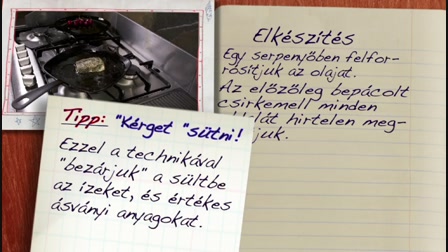 Elkészítés
Egy serpenyőben felfor-
rósítjuk az olajat.
Az előzőleg bepácolt
csirkemell minden
hirtelen meg-
juk.
Tipp: "Kérget "sütni!
Ezzel a technikával
"bezárjuk" a sültbe
az ízeket, és értékes
ásványi anyagokat.